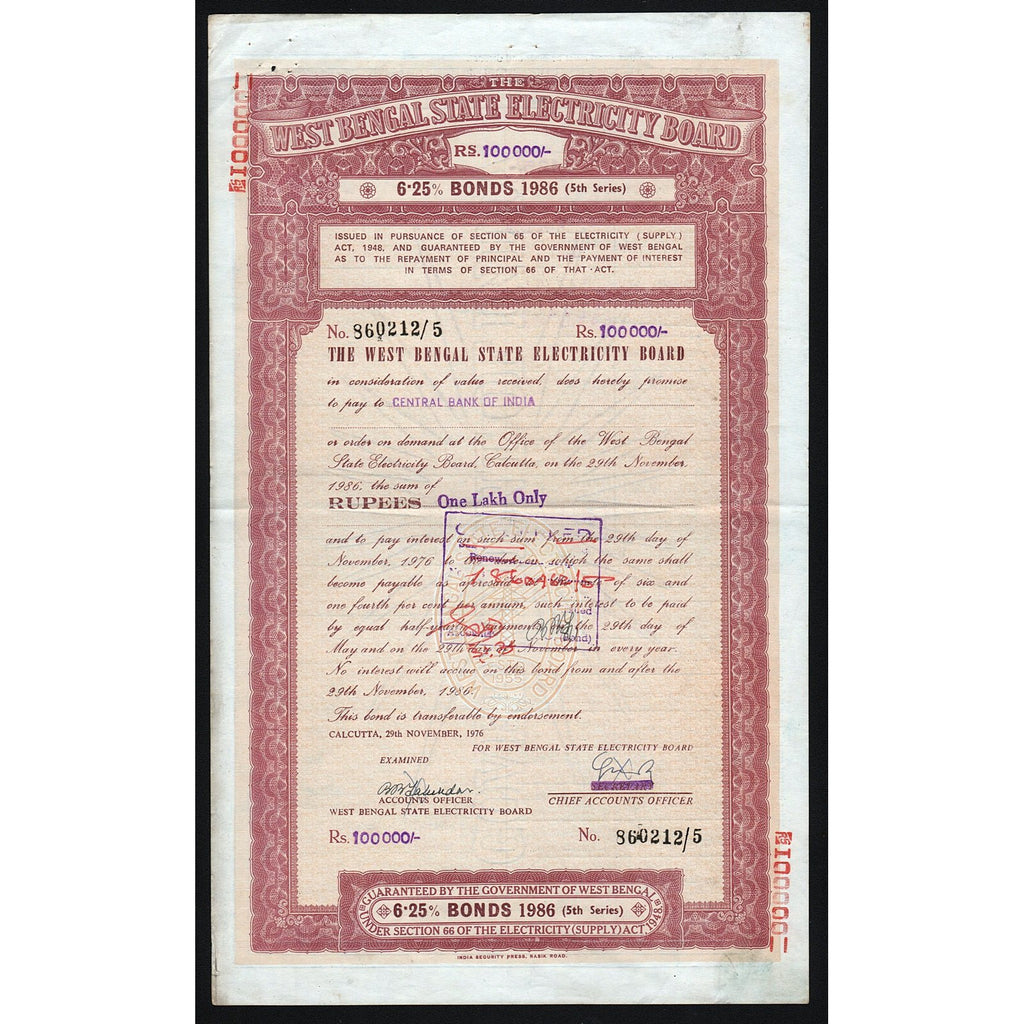 THE
WEST BENGAL STATE ELECTRICITY BOARD
RS. 100000/-
6·25% BONDS 1986 (5th Series)
ISSUED IN PURSUANCE OF SECTION 65 OF THE ELECTRICITY (SUPPLY)
ACT, 1948, AND GUARANTEED BY THE GOVERNMENT OF WEST BENGAL
AS TO THE REPAYMENT OF PRINCIPAL AND THE PAYMENT OF INTEREST
IN TERMS OF SECTION 66 OF THAT ACT.
No. 860212/5 Rs. 100000/-
THE WEST BENGAL STATE ELECTRICITY BOARD
in consideration of value received, does hereby promise
to pay to CENTRAL BANK OF INDIA
or order on demand at the Office of the West Bengal
State Electricity Board, Calcutta, on the 29th November,
1986, the sum of
RUPEES One Lakh Only
and to pay interest on such sum from the 29th day of
November, 1976 to the date on which the same shall
become payable as aforesaid at the rate of six and
one fourth per cent per annum, such interest to be paid
by equal half-yearly payments on the 29th day of
May and on the 29th day of November in every year.
No interest will accrue on this bond from and after the
29th November, 1986.
This bond is transferable by endorsement.
CALCUTTA, 29th NOVEMBER, 1976
FOR WEST BENGAL STATE ELECTRICITY BOARD
EXAMINED
SECRETARY
ACCOUNTS OFFICER CHIEF ACCOUNTS OFFICER
WEST BENGAL STATE ELECTRICITY BOARD
Rs. 100000/- No. 860212/5
GUARANTEED BY THE GOVERNMENT OF WEST BENGAL
6·25% BONDS 1986 (5th Series)
UNDER SECTION 66 OF THE ELECTRICITY (SUPPLY) ACT, 1948
INDIA SECURITY PRESS, NASIK ROAD.